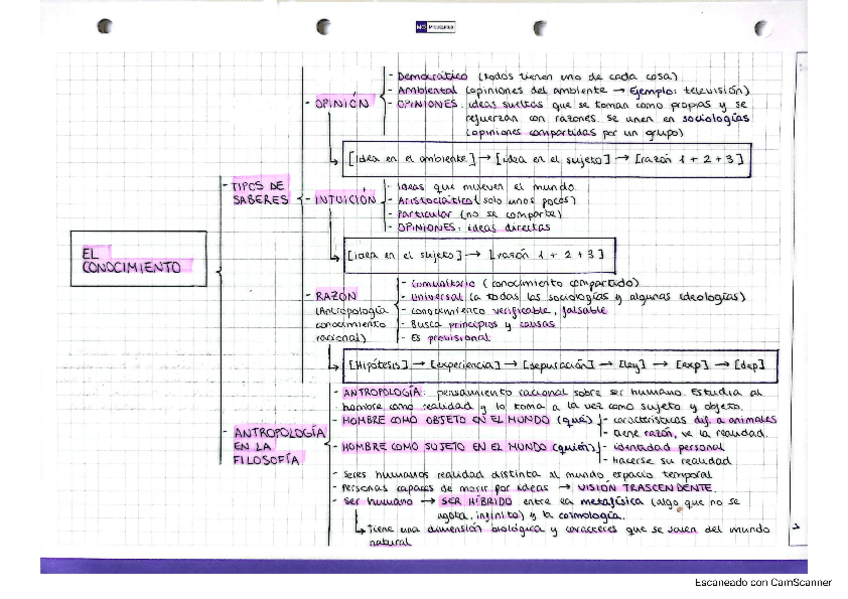 - Democrático (todos tienen uno de cada cosa)
- Ambiental (opiniones del ambiente → Ejemplo: televisión)
- OPINIÓN
- OPINIONES: ideas sueltas que se toman como propias y se
refuerzan con razones. Se unen en sociologías
(opiniones compartidas por un grupo)
[Idea en el ambiente] → [idea en el sujeto] → [razón 1 + 2 + 3]
- TIPOS DE
SABERES
- INTUICIÓN
- Ideas que mueven el mundo
- Aristocrático (solo unos pocos)
- Particular (no se comparte)
- OPINIONES: ideas directas
[idea en el sujeto] → [razón 1 + 2 + 3]
EL
CONOCIMIENTO
- RAZÓN
(Antropología
conocimiento
racional)
- Comunitario (conocimiento compartido)
- Universal (a todas las sociologías y algunas ideologías)
- conocimiento verificable, falsable
- Busca principios y causas
- Es provisional
[Hipótesis] → [experiencia] → [depuración] → [ley] → [exp] → [dep]
- ANTROPOLOGÍA
EN LA
FILOSOFÍA
- ANTROPOLOGÍA: pensamiento racional sobre ser humano. Estudia al
hombre como realidad y lo toma a la vez como sujeto y objeto.
- HOMBRE COMO OBJETO EN EL MUNDO (qué)
- características dif. a animales
- tiene razón, ve la realidad.
- HOMBRE COMO SUJETO EN EL MUNDO (quién)
- identidad personal
- hacerse su realidad
- Seres humanos realidad distinta al mundo espacio temporal
- Personas capaces de morir por ideas → VISIÓN TRASCENDENTE.
- Ser humano → SER HÍBRIDO entre la metafísica (algo que no se
agota, infinito) y la cosmología.
↳ Tiene una dimensión biológica y caracteres que se salen del mundo
natural
Escaneado con CamScanner